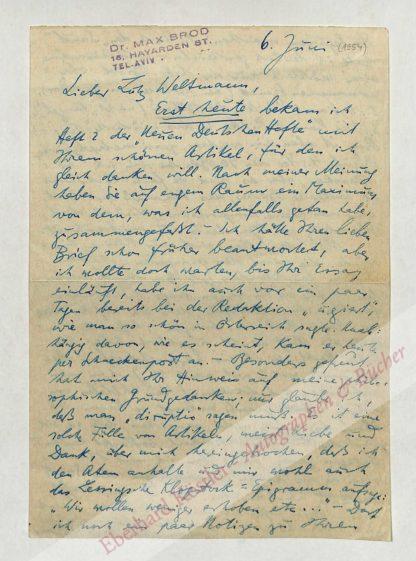 Dr. MAX BROD
16, HAYARDEN ST.
TEL-AVIV
6. Juni (1954)
Lieber Lutz Weltmann,
Erst heute bekam ich
Heft 2 der "Neuen Deutschen Hefte" mit
Ihrem schönen Artikel, für den ich
gleich danken will. Nach meiner Meinung
haben Sie auf engem Raum ein Maximum
von dem, was ich allenfalls getan habe,
zusammengefaßt. - Ich hätte Ihren lieben
Brief schon früher beantwortet, aber
ich wollte doch warten, bis Ihr Essay
einläuft, habe ihn auch vor ein paar
Tagen bereits bei der Redaktion "urgiert",
wie man so schön in Österreich sagt. Unab-
hängig davon, wie es scheint, kam es heute
per Schneckenpost an. - Besonders gefreut
hat mich Ihr Hinweis auf meine philo-
sophischen Grundgedanken; nur glaube ich,
daß man "diruptio" sagen muß. Es ist eine
solche Fülle von Artikeln, Liebe und
Dank, über mich hereingebrochen, daß ich
den Atem anhalte und mir wohl auch
das Lessingsche Klopstock-Epigramm aufsage:
"Wir wollen weniger erhoben etc..." - Darf
ich noch ein paar Notizen zu Ihrem
Eberhard Köstler - Autographen & Bücher